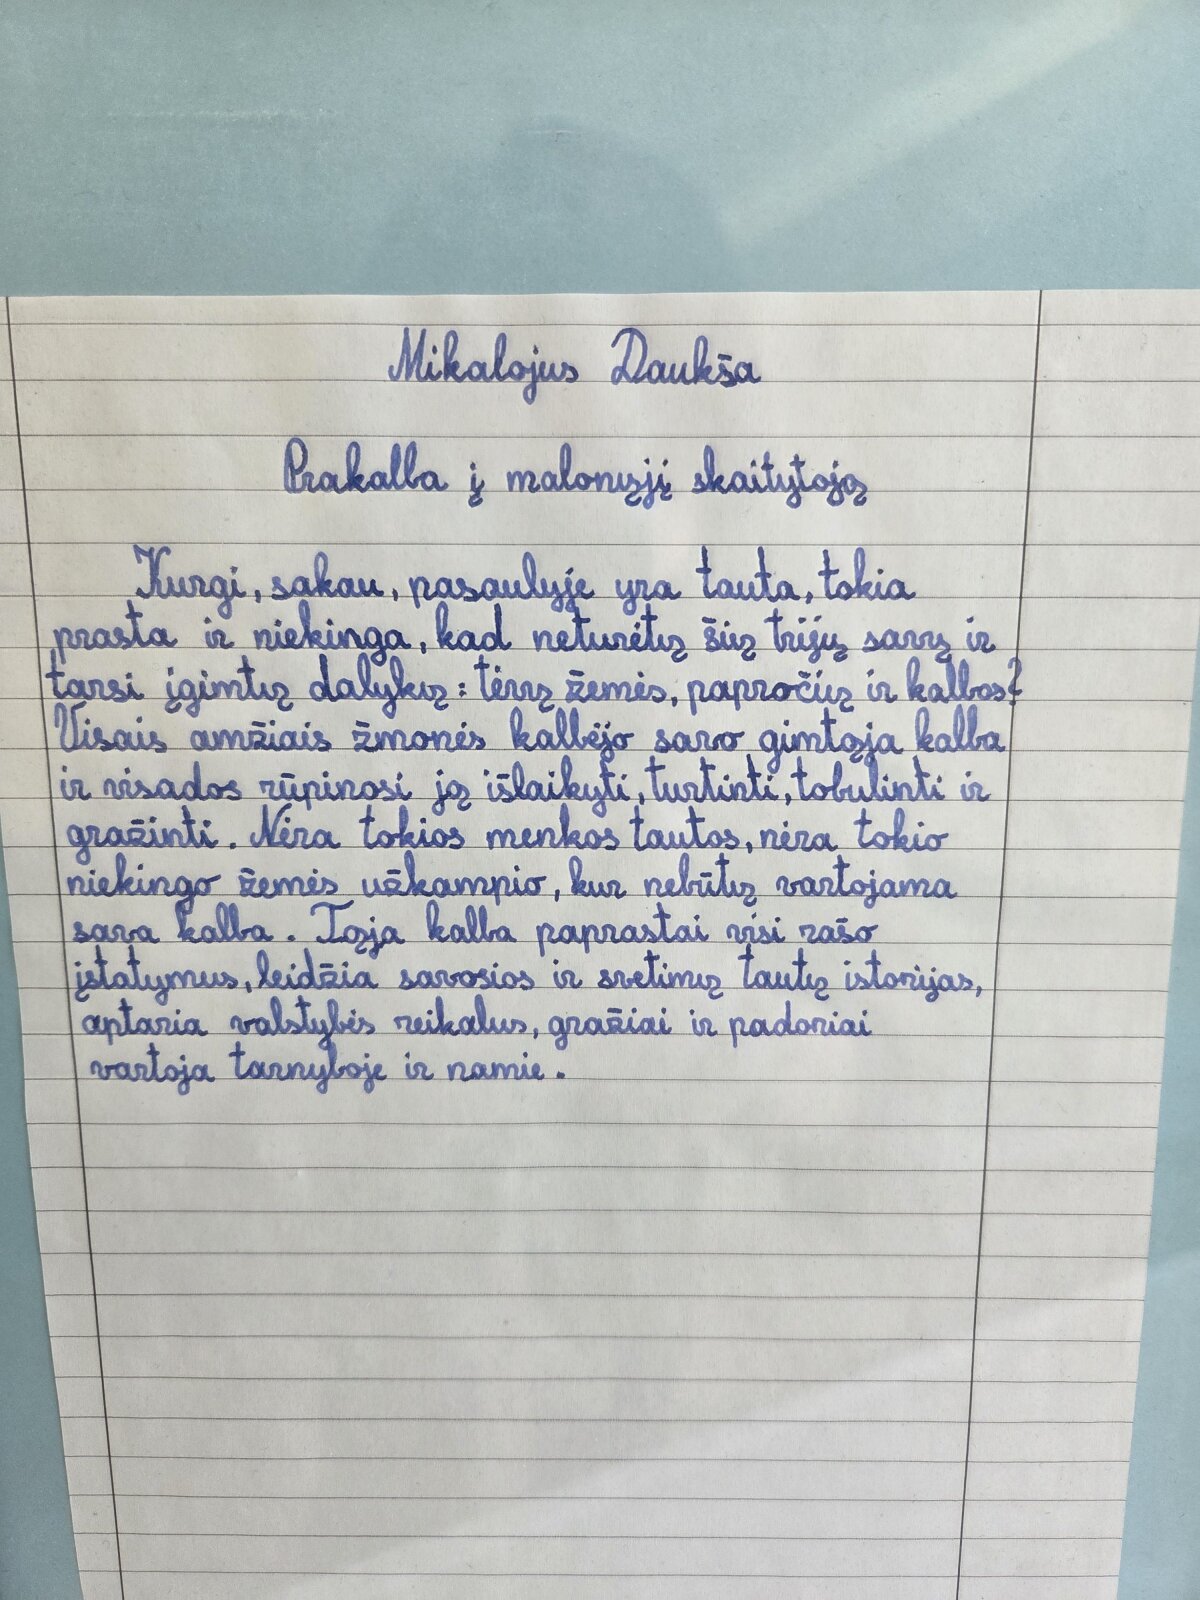 Mikalojus Daukša
Prakalba į malonųjį skaitytoją
Kurgi, sakau, pasaulyje yra tauta, tokia
prasta ir niekinga, kad neturėtų šių trijų savų ir
tarsi įgimtų dalykų: tėvų žemės, papročių ir kalbos?
Visais amžiais žmonės kalbėjo savo gimtąja kalba
ir visados rūpinosi ją išlaikyti, turtinti, tobulinti ir
gražinti. Nėra tokios menkos tautos, nėra tokio
niekingo žemės užkampio, kur nebūtų vartojama
sava kalba. Tąja kalba paprastai visi rašo
įstatymus, leidžia savosios ir svetimų tautų istorijas,
aptaria valstybės reikalus, gražiai ir padoriai
vartoja tarnyboje ir namie.